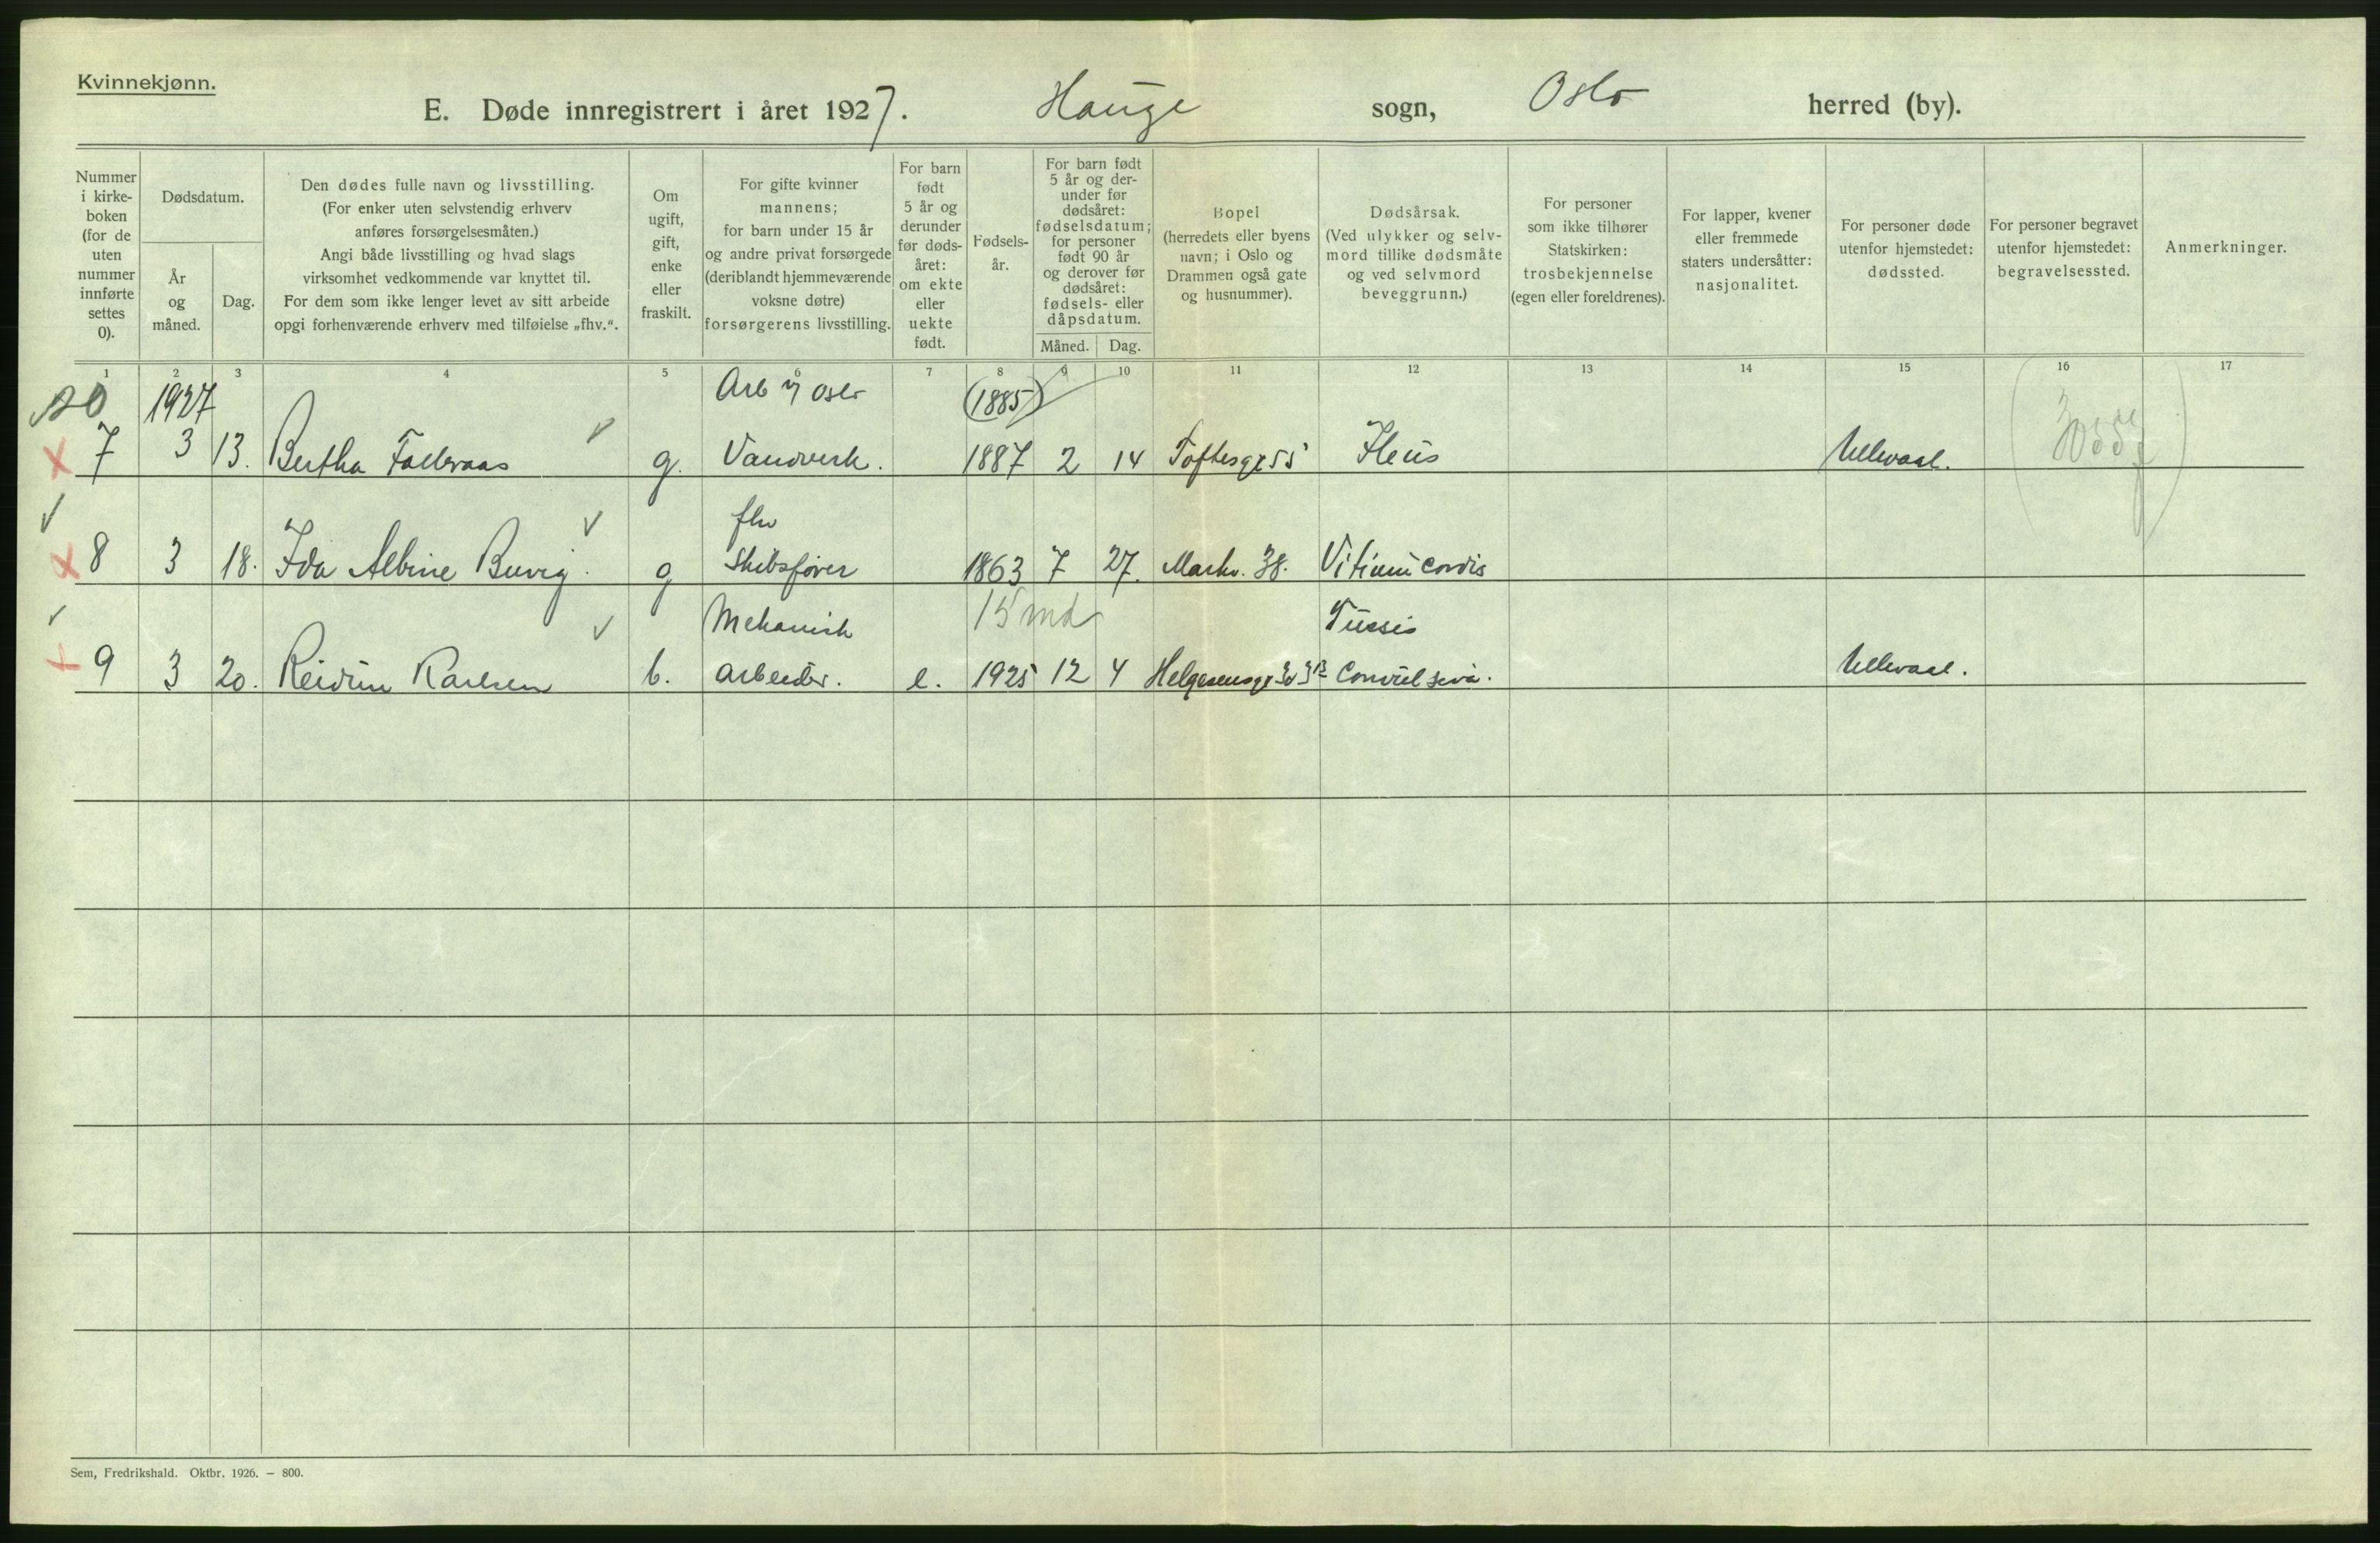 Kvinnekjønn.
E. Døde innregistrert i året 1927. Hauge sogn, Oslo herred (by).
Nummer i kirke-boken (for de uten nummer innførte settes 0).
Dødsdatum.
År og måned.
Dag.
Den dødes fulle navn og livsstilling.
(For enker uten selvstendig erhverv
anføres forsørgelsesmåten.)
Angi både livsstilling og hvad slags
virksomhet vedkommende var knyttet til.
For dem som ikke lenger levet av sitt arbeide
opgi forhenværende erhverv med tilføielse „fhv.“.
Om
ugift,
gift,
enke
eller
fraskilt.
For gifte kvinner
mannens;
for barn under 15 år
og andre privat forsørgede
(deriblandt hjemmeværende
voksne døtre)
forsørgerens livsstilling.
For barn
født
5 år og
derunder
før døds-
året:
om ekte
eller
uekte
født.
Fødsels-
år.
For barn født
5 år og der-
under før
dødsåret:
fødselsdatum;
for personer
født 90 år
og derover før
dødsåret:
fødsels- eller
dåpsdatum.
Måned. Dag.
Bopel
(herredets eller byens
navn; i Oslo og
Drammen også gate
og husnummer).
Dødsårsak.
(Ved ulykker og selv-
mord tillike dødsmåte
og ved selvmord
beveggrunn.)
For personer
som ikke tilhører
Statskirken:
trosbekjennelse
(egen eller foreldrenes).
For lapper, kvener
eller fremmede
staters undersåtter:
nasjonalitet.
For personer døde
utenfor hjemstedet:
dødssted.
For personer begravet
utenfor hjemstedet:
begravelsessted.
Anmerkninger.
1 2 3 4 5 6 7 8 9 10 11 12 13 14 15 16 17
1927 Arb v Oslo (1885)
7 3 13. Bertha Falleraas g. Vandverk. 1887 2 14 Toftesgt 55 Ileus Ullevaal.
fhv
8 3 18. Ida Albine Buvig. g Skibsfører 1863 7 27. Markv. 38. Vitium cordis
Mekanisk 15 md Tussis
9 3 20. Reidun Karlsen b. arbeider. e. 1925 12 4 Helgesensgt Convulsiva. Ullevaal.
Sem, Fredrikshald. Oktbr. 1926. — 800.